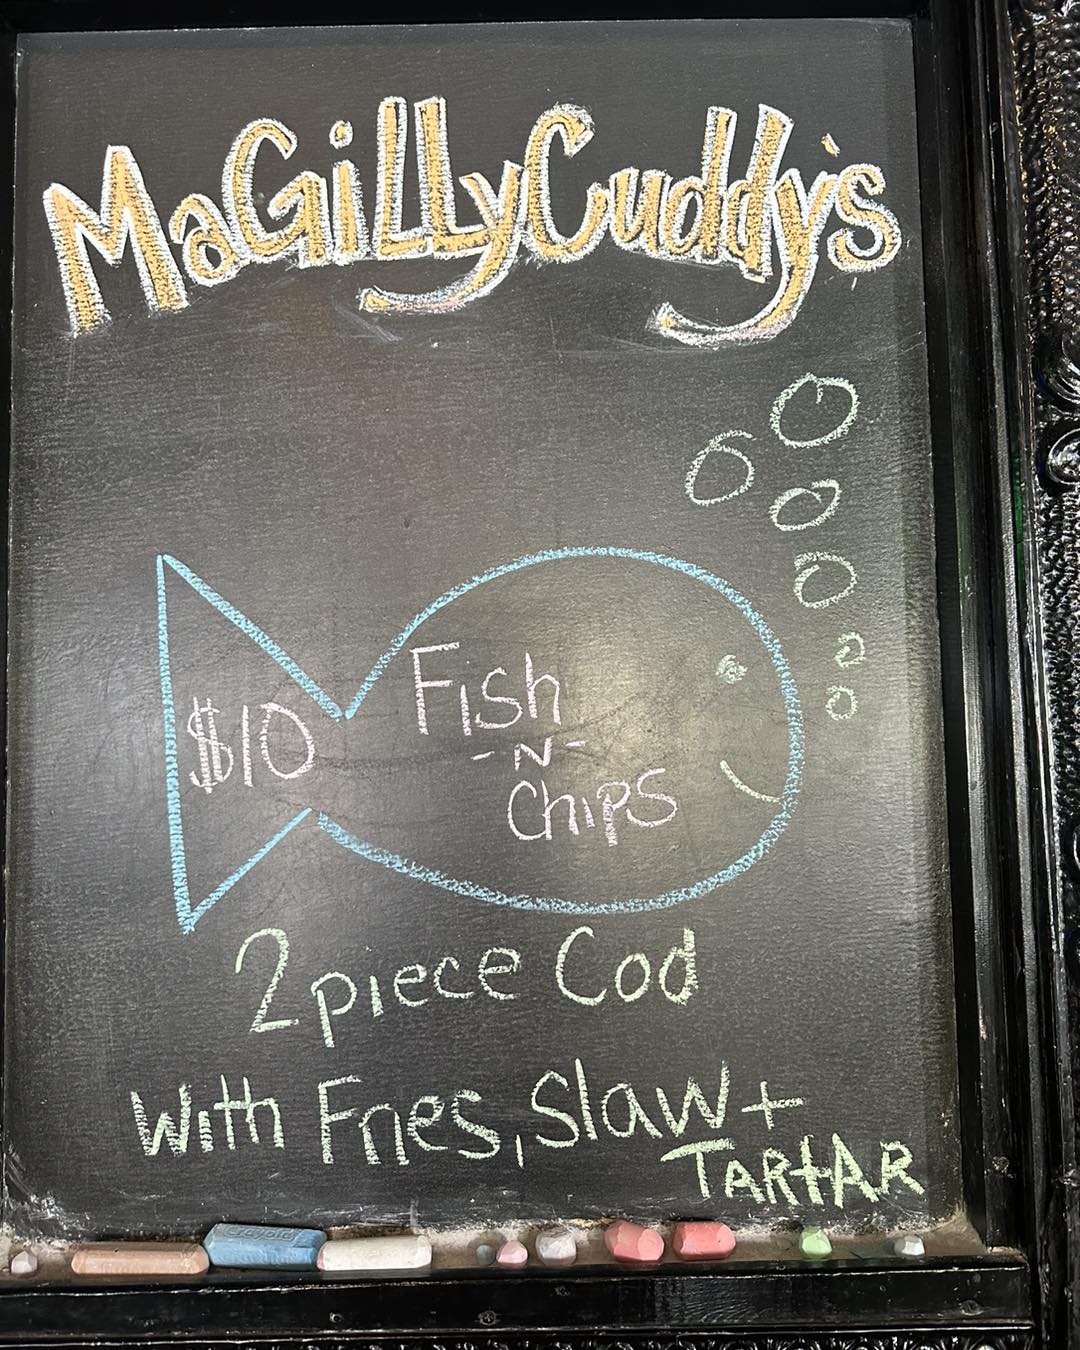 MaGiLLyCuddy's
$10
Fish
-N-
Chips
2 piece Cod
With Fries, Slaw +
TARtAR
crayola